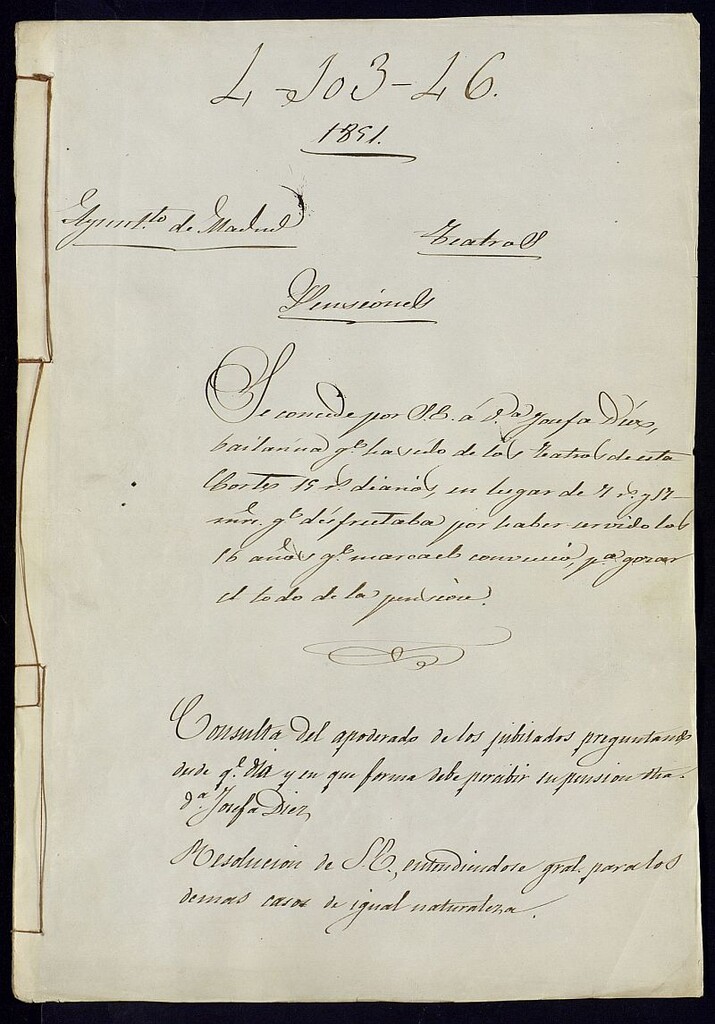 4-103-46.
1851.
Ayunt.to de Madrid
Teatros
Pensiones
Se concede por S.E. á D.a Josefa Diez,
bailarina q.e ha sido de los Teatros de esta
Corte, 15 r.s diarios, en lugar de 7 r.s y 17
mrs. q.e disfrutaba por haber servido los
16 años q.e marca el convenio, p.a gozar
el todo de la pension.
Consulta del apoderado de los jubilados preguntando
desde q.e dia y en que forma debe percibir su pension dha.
D.a Josefa Diez
Resolucion de S.E., entendiendose gral. para los
demas casos de igual naturaleza.